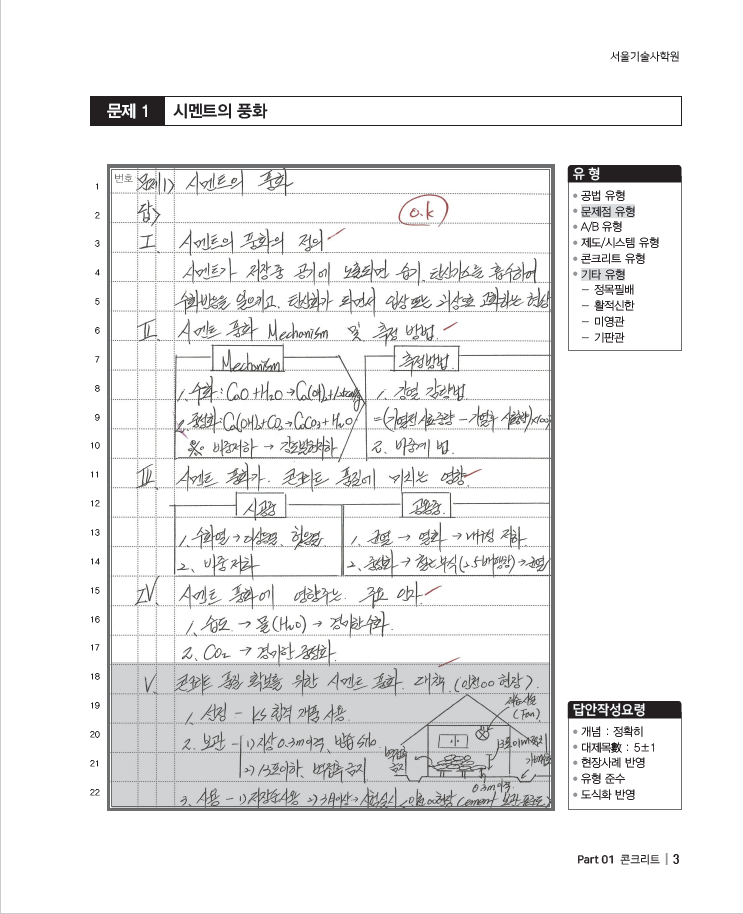 서울기술사학원
문제 1 시멘트의 풍화
번호 문제1) 시멘트의 풍화
답)
O.K
I. 시멘트의 풍화의 정의
시멘트가 저장중 공기에 노출되면 습기, 탄산가스를 흡수하여
수화반응을 일으키고, 탄산화가 되면서 입상 또는 괴상으로 고화하는 현상
II. 시멘트 풍화 Mechanism 및 측정 방법.
Mechanism
1. 수화 : CaO + H2O → Ca(OH)2 +
2. 중성화 : Ca(OH)2 + CO2 → CaCO3 + H2O
※ 비중저하 → 강도발현저하
측정방법.
1. 강열 감량법
2. 비중계 법.
III. 시멘트 풍화가 콘크리트 품질에 미치는 영향
시공중
1. 수화열 → 이상응결, 헛응결
2. 비중저하
공용중
1. 균열 → 열화 → 내구성 저하
2. 중성화 → 철근부식(2.5배팽창) → 균열
IV. 시멘트 풍화에 영향주는 주요 인자
1. 습도 → 물(H2O) → 경미한 수화
2. CO2 → 경미한 중성화
V. 콘크리트 품질 확보를 위한 시멘트 풍화 대책. (인천○○현장).
1. 선정 - KS 합격 제품 사용.
2. 보관 - 1) 지상 0.3m 이격, 방습 Silo.
2) 13포이하, 벽접촉 금지
(Fan)
벽접촉
금지
0.3m 이격
3. 사용 - 1) 저장순 사용 2) 3개월이상 → 시험실시
1
2
3
4
5
6
7
8
9
10
11
12
13
14
15
16
17
18
19
20
21
22
유 형
공법 유형
문제점 유형
A/B 유형
제도/시스템 유형
콘크리트 유형
기타 유형
– 정목필배
– 활적신한
– 미영관
– 기판관
답안작성요령
개념 : 정확히
대제목數 : 5±1
현장사례 반영
유형 준수
도식화 반영
Part 01 콘크리트 | 3